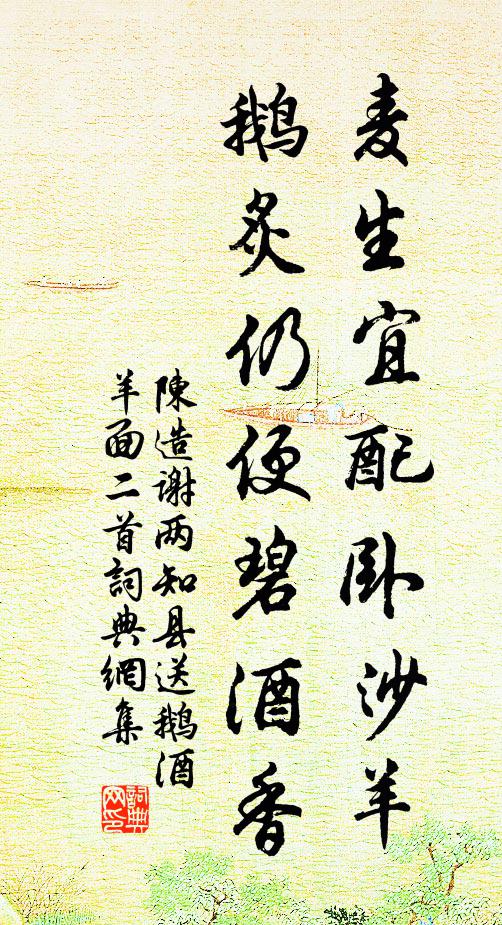 麦生宜配卧沙羊
鹅炙仍便碧酒香
陳造谢两知县送鹅酒
羊面二首詞典網集
詞典
网印